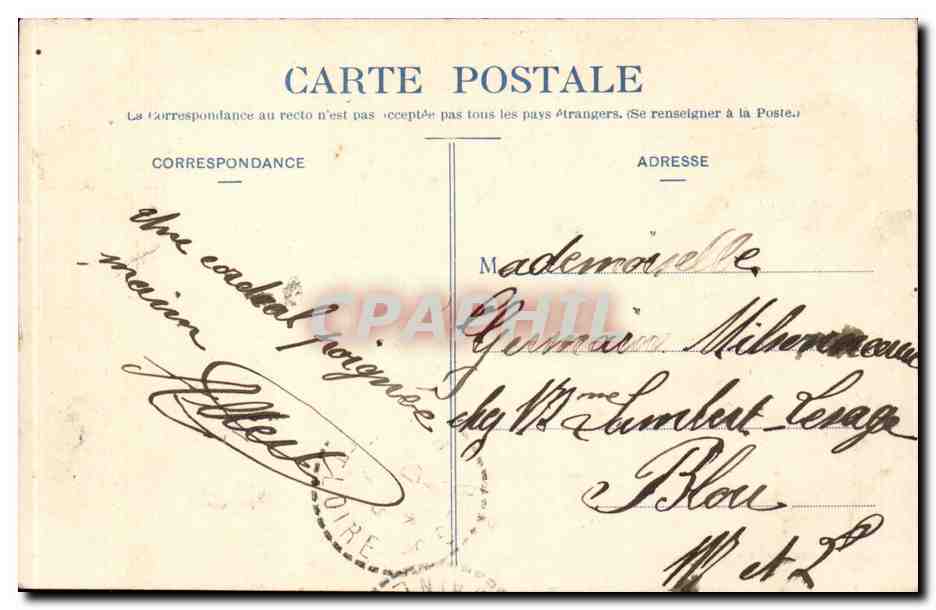 CARTE POSTALE
La Correspondance au recto n'est pas acceptée pas tous les pays étrangers. (Se renseigner à la Poste.)
CORRESPONDANCE
une cordial poignée
main
Albert
ADRESSE
Mademoiselle
Germain
chez Mme Lambert-Lesage
Blou
M et L
CPAPHIL
LOIRE